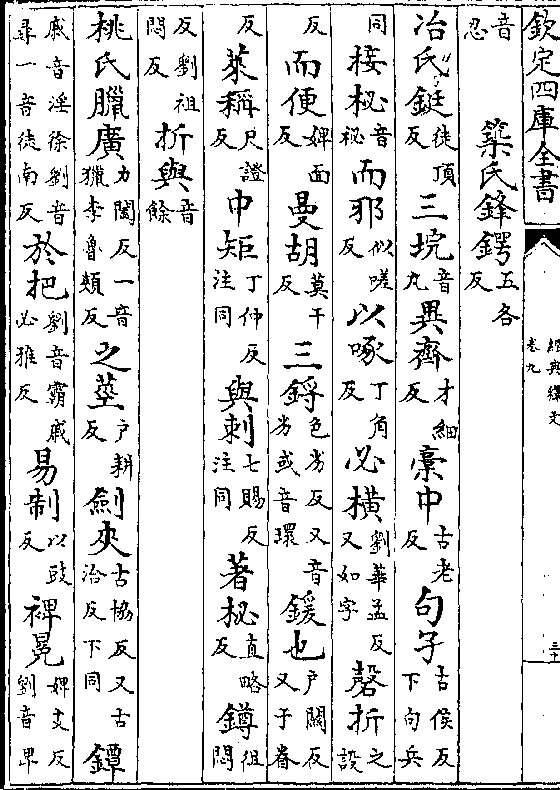 欽定四庫全書
經典釋文
卷九
三十
音忍 築氏鋒鍔五各反
冶氏鋌徒頂反三垸音丸異齊才細反稾中古老反句子古侯反下句兵
同接柲音祕而邪似嗟反以啄丁角反必橫劉華孟反又如字磬折之設
反而便婢面反曼胡莫干反三鋝色劣反又音劣或音環鍰也戶關反又于眷
反萊稱尺證反中矩丁仲反注同與刺七賜反注同著柲直略反鐏徂悶
反劉祖悶反折與音餘
桃氏臘廣力闔反一音獵李魯頰反之莖戶耕反劍夾古協反又古洽反下同鐔
戚音淫徐劉音尋一音徒南反於把劉音霸戚必雅反易制以豉反裨冕婢支反劉音卑